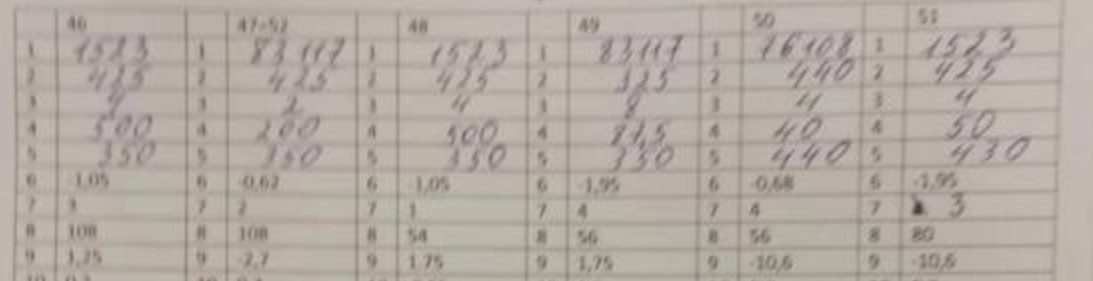 46 47-52 48 49 50 51
1 1523 1 83117 1 1523 1 83117 1 76108 1 1523
2 425 2 425 2 425 2 325 2 440 2 425
3 4 3 2 3 4 3 8 3 4 3 4
4 500 4 200 4 500 4 87,5 4 40 4 50
5 350 5 350 5 350 5 350 5 440 5 430
6 -1,05 6 -0,62 6 -1,05 6 -1,95 6 -0,68 6 -1,95
7 3 7 2 7 1 7 4 7 4 7 3
8 108 8 108 8 54 8 56 8 56 8 80
9 1,25 9 -2,7 9 1,75 9 1,75 9 -10,6 9 -10,6